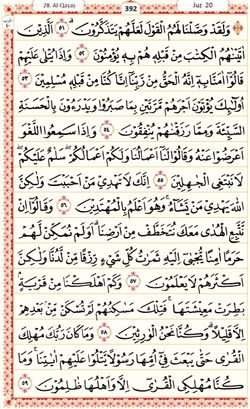 28. Al-Qaṣaṣ 392 Juz 20
وَلَقَدْ وَصَّلْنَا لَهُمُ الْقَوْلَ لَعَلَّهُمْ يَتَذَكَّرُوْنَ ۝٥١ اَلَّذِيْنَ
اٰتَيْنٰهُمُ الْكِتٰبَ مِنْ قَبْلِهٖ هُمْ بِهٖ يُؤْمِنُوْنَ ۝٥٢ وَاِذَا يُتْلٰى عَلَيْهِمْ
قَالُوْٓا اٰمَنَّا بِهٖٓ اِنَّهُ الْحَقُّ مِنْ رَّبِّنَآ اِنَّا كُنَّا مِنْ قَبْلِهٖ مُسْلِمِيْنَ ۝٥٣
اُولٰۤىِٕكَ يُؤْتَوْنَ اَجْرَهُمْ مَّرَّتَيْنِ بِمَا صَبَرُوْا وَيَدْرَءُوْنَ بِالْحَسَنَةِ
السَّيِّئَةَ وَمِمَّا رَزَقْنٰهُمْ يُنْفِقُوْنَ ۝٥٤ وَاِذَا سَمِعُوا اللَّغْوَ
اَعْرَضُوْا عَنْهُ وَقَالُوْا لَنَآ اَعْمَالُنَا وَلَكُمْ اَعْمَالُكُمْ سَلٰمٌ عَلَيْكُمْ
لَا نَبْتَغِى الْجٰهِلِيْنَ ۝٥٥ اِنَّكَ لَا تَهْدِيْ مَنْ اَحْبَبْتَ وَلٰكِنَّ
اللّٰهَ يَهْدِيْ مَنْ يَّشَاۤءُ وَهُوَ اَعْلَمُ بِالْمُهْتَدِيْنَ ۝٥٦ وَقَالُوْٓا اِنْ
نَّتَّبِعِ الْهُدٰى مَعَكَ نُتَخَطَّفْ مِنْ اَرْضِنَا اَوَلَمْ نُمَكِّنْ لَّهُمْ
حَرَمًا اٰمِنًا يُّجْبٰٓى اِلَيْهِ ثَمَرٰتُ كُلِّ شَيْءٍ رِّزْقًا مِّنْ لَّدُنَّا وَلٰكِنَّ
اَكْثَرَهُمْ لَا يَعْلَمُوْنَ ۝٥٧ وَكَمْ اَهْلَكْنَا مِنْ قَرْيَةٍۢ
بَطِرَتْ مَعِيْشَتَهَا فَتِلْكَ مَسٰكِنُهُمْ لَمْ تُسْكَنْ مِّنْۢ بَعْدِهِمْ
اِلَّا قَلِيْلًا وَكُنَّا نَحْنُ الْوٰرِثِيْنَ ۝٥٨ وَمَا كَانَ رَبُّكَ مُهْلِكَ
الْقُرٰى حَتّٰى يَبْعَثَ فِيْٓ اُمِّهَا رَسُوْلًا يَّتْلُوْا عَلَيْهِمْ اٰيٰتِنَا وَمَا
كُنَّا مُهْلِكِى الْقُرٰٓى اِلَّا وَاَهْلُهَا ظٰلِمُوْنَ ۝٥٩